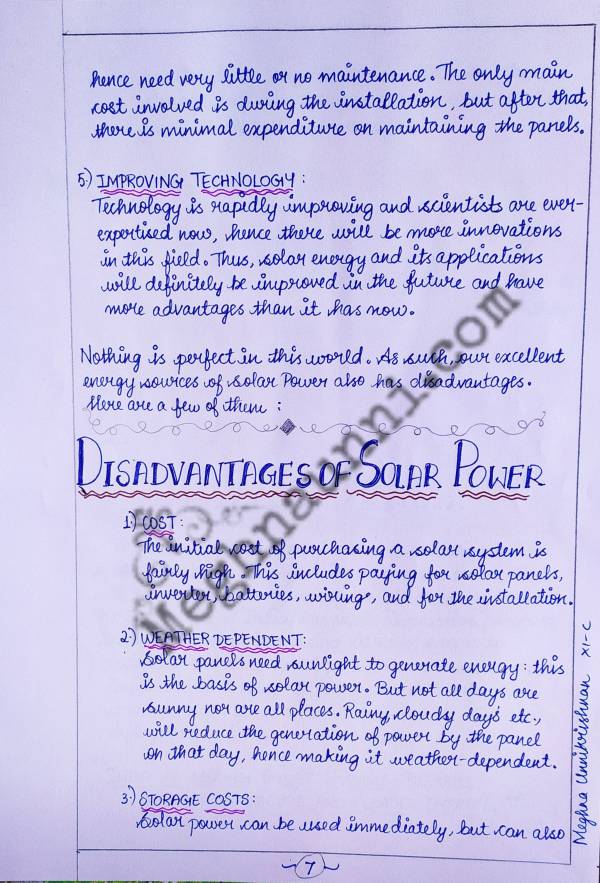 hence need very little or no maintenance. The only main
cost involved is during the installation, but after that,
there is minimal expenditure on maintaining the panels.
5.) IMPROVING TECHNOLOGY:
Technology is rapidly improving and scientists are ever-
expertised now, hence there will be more innovations
in this field. Thus, solar energy and its applications
will definitely be improved in the future and have
more advantages than it has now.
Nothing is perfect in this world. As such, our excellent
energy sources of Solar Power also has disadvantages.
Here are a few of them:
DISADVANTAGES OF SOLAR POWER
1.) COST:
The initial cost of purchasing a solar system is
fairly high. This includes paying for solar panels,
inverter, batteries, wiring, and for the installation.
2.) WEATHER DEPENDENT:
Solar panels need sunlight to generate energy: this
is the basis of solar power. But not all days are
sunny nor are all places. Rainy, cloudy days etc.,
will reduce the generation of power by the panel
on that day, hence making it weather-dependent.
3.) STORAGE COSTS:
Solar power can be used immediately, but can also
7
Meghna Unnikrishnan XI-C
Meghnaunni.com